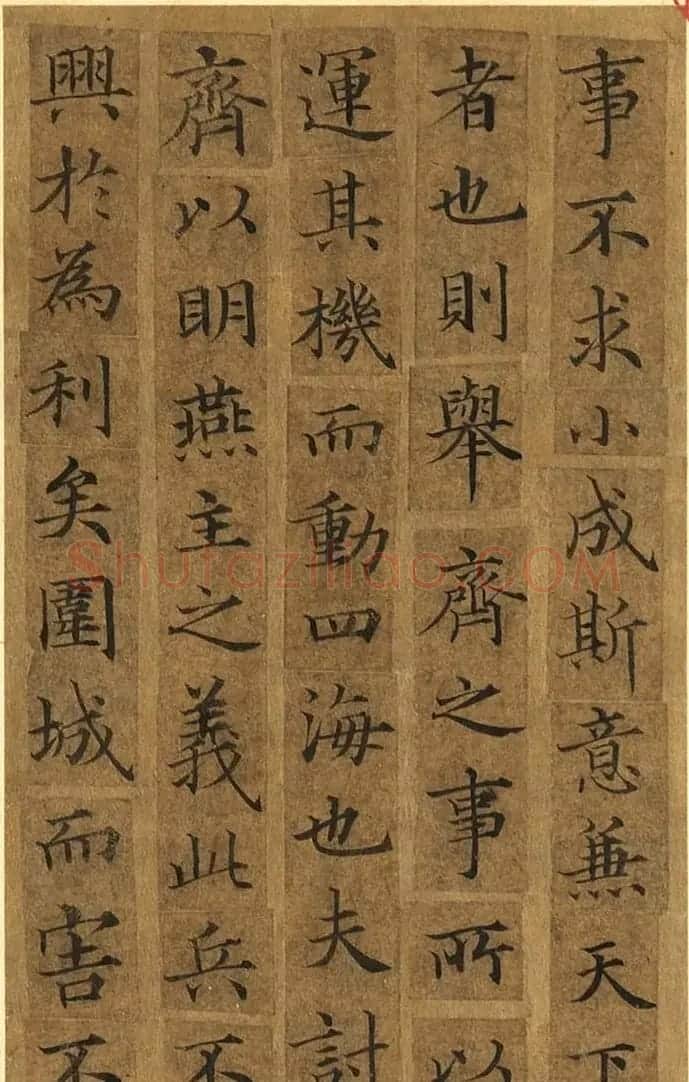 事不求小成斯意兼天下
者也則舉齊之事所以
運其機而動四海也夫討
齊以明燕主之義此兵不
興於為利矣圍城而害不
Shufaziliao.COM